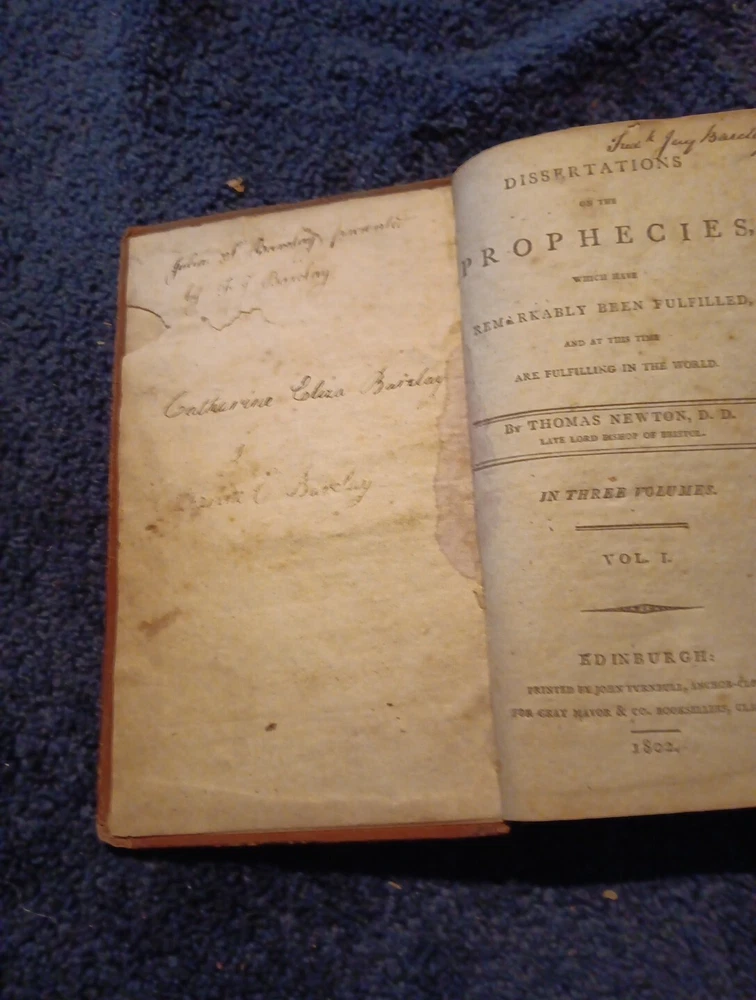 Barclay
by F G Barclay
Catharine Eliza Barclay
Barclay
DISSERTATIONS
ON THE
PROPHECIES,
WHICH HAVE
REMARKABLY BEEN FULFILLED,
AND AT THIS TIME
ARE FULFILLING IN THE WORLD.
BY THOMAS NEWTON, D. D.
LATE LORD BISHOP OF BRISTOL.
IN THREE VOLUMES.
VOL. I.
EDINBURGH:
PRINTED BY JOHN TURNBULL, ANCHOR-CLO
FOR GRAY MAVOR & CO. BOOKSELLERS, GLA
1802.